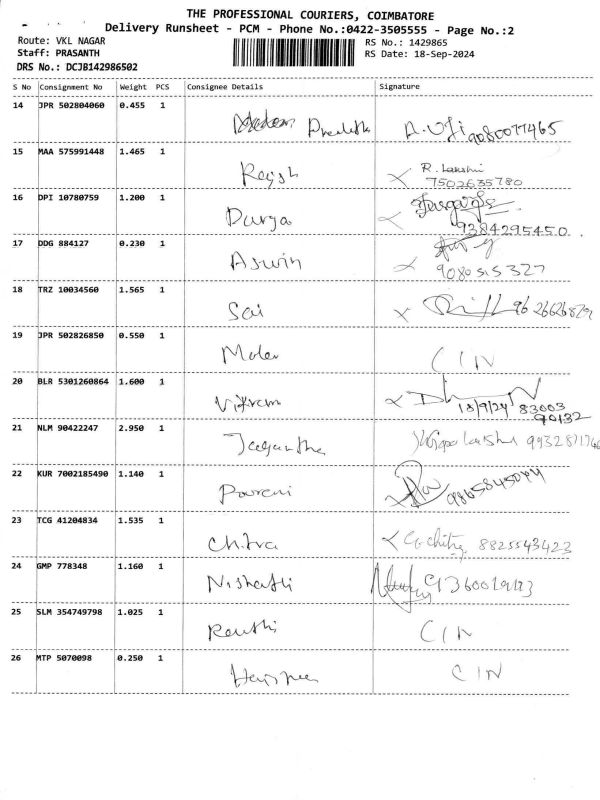 THE PROFESSIONAL COURIERS, COIMBATORE
Delivery Runsheet - PCM - Phone No.:0422-3505555 - Page No.:2
Route: VKL NAGAR
RS No.: 1429865
Staff: PRASANTH
RS Date: 18-Sep-2024
DRS No.: DCJB142986502
S No Consignment No Weight PCS Consignee Details Signature
14 JPR 502804060 0.455 1
A. Uji 9080077465
15 MAA 575991448 1.465 1 Rajesh
R. Lakshmi
7502635780
16 DPI 10780759 1.200 1 Durga
9384295450
17 DDG 884127 0.230 1 Aswin
9080515327
18 TRZ 10034560 1.565 1 Sai
19 JPR 502826850 0.550 1
CIN
20 BLR 5301260864 1.600 1 Vikram
18/9/24 83003
90132
21 NLM 90422247 2.950 1
22 KUR 7002185490 1.140 1
23 TCG 41204834 1.535 1 Chitra
8825543423
24 GMP 778348 1.160 1
25 SLM 354749798 1.025 1
CIN
26 MTP 5070098 0.250 1
CIN